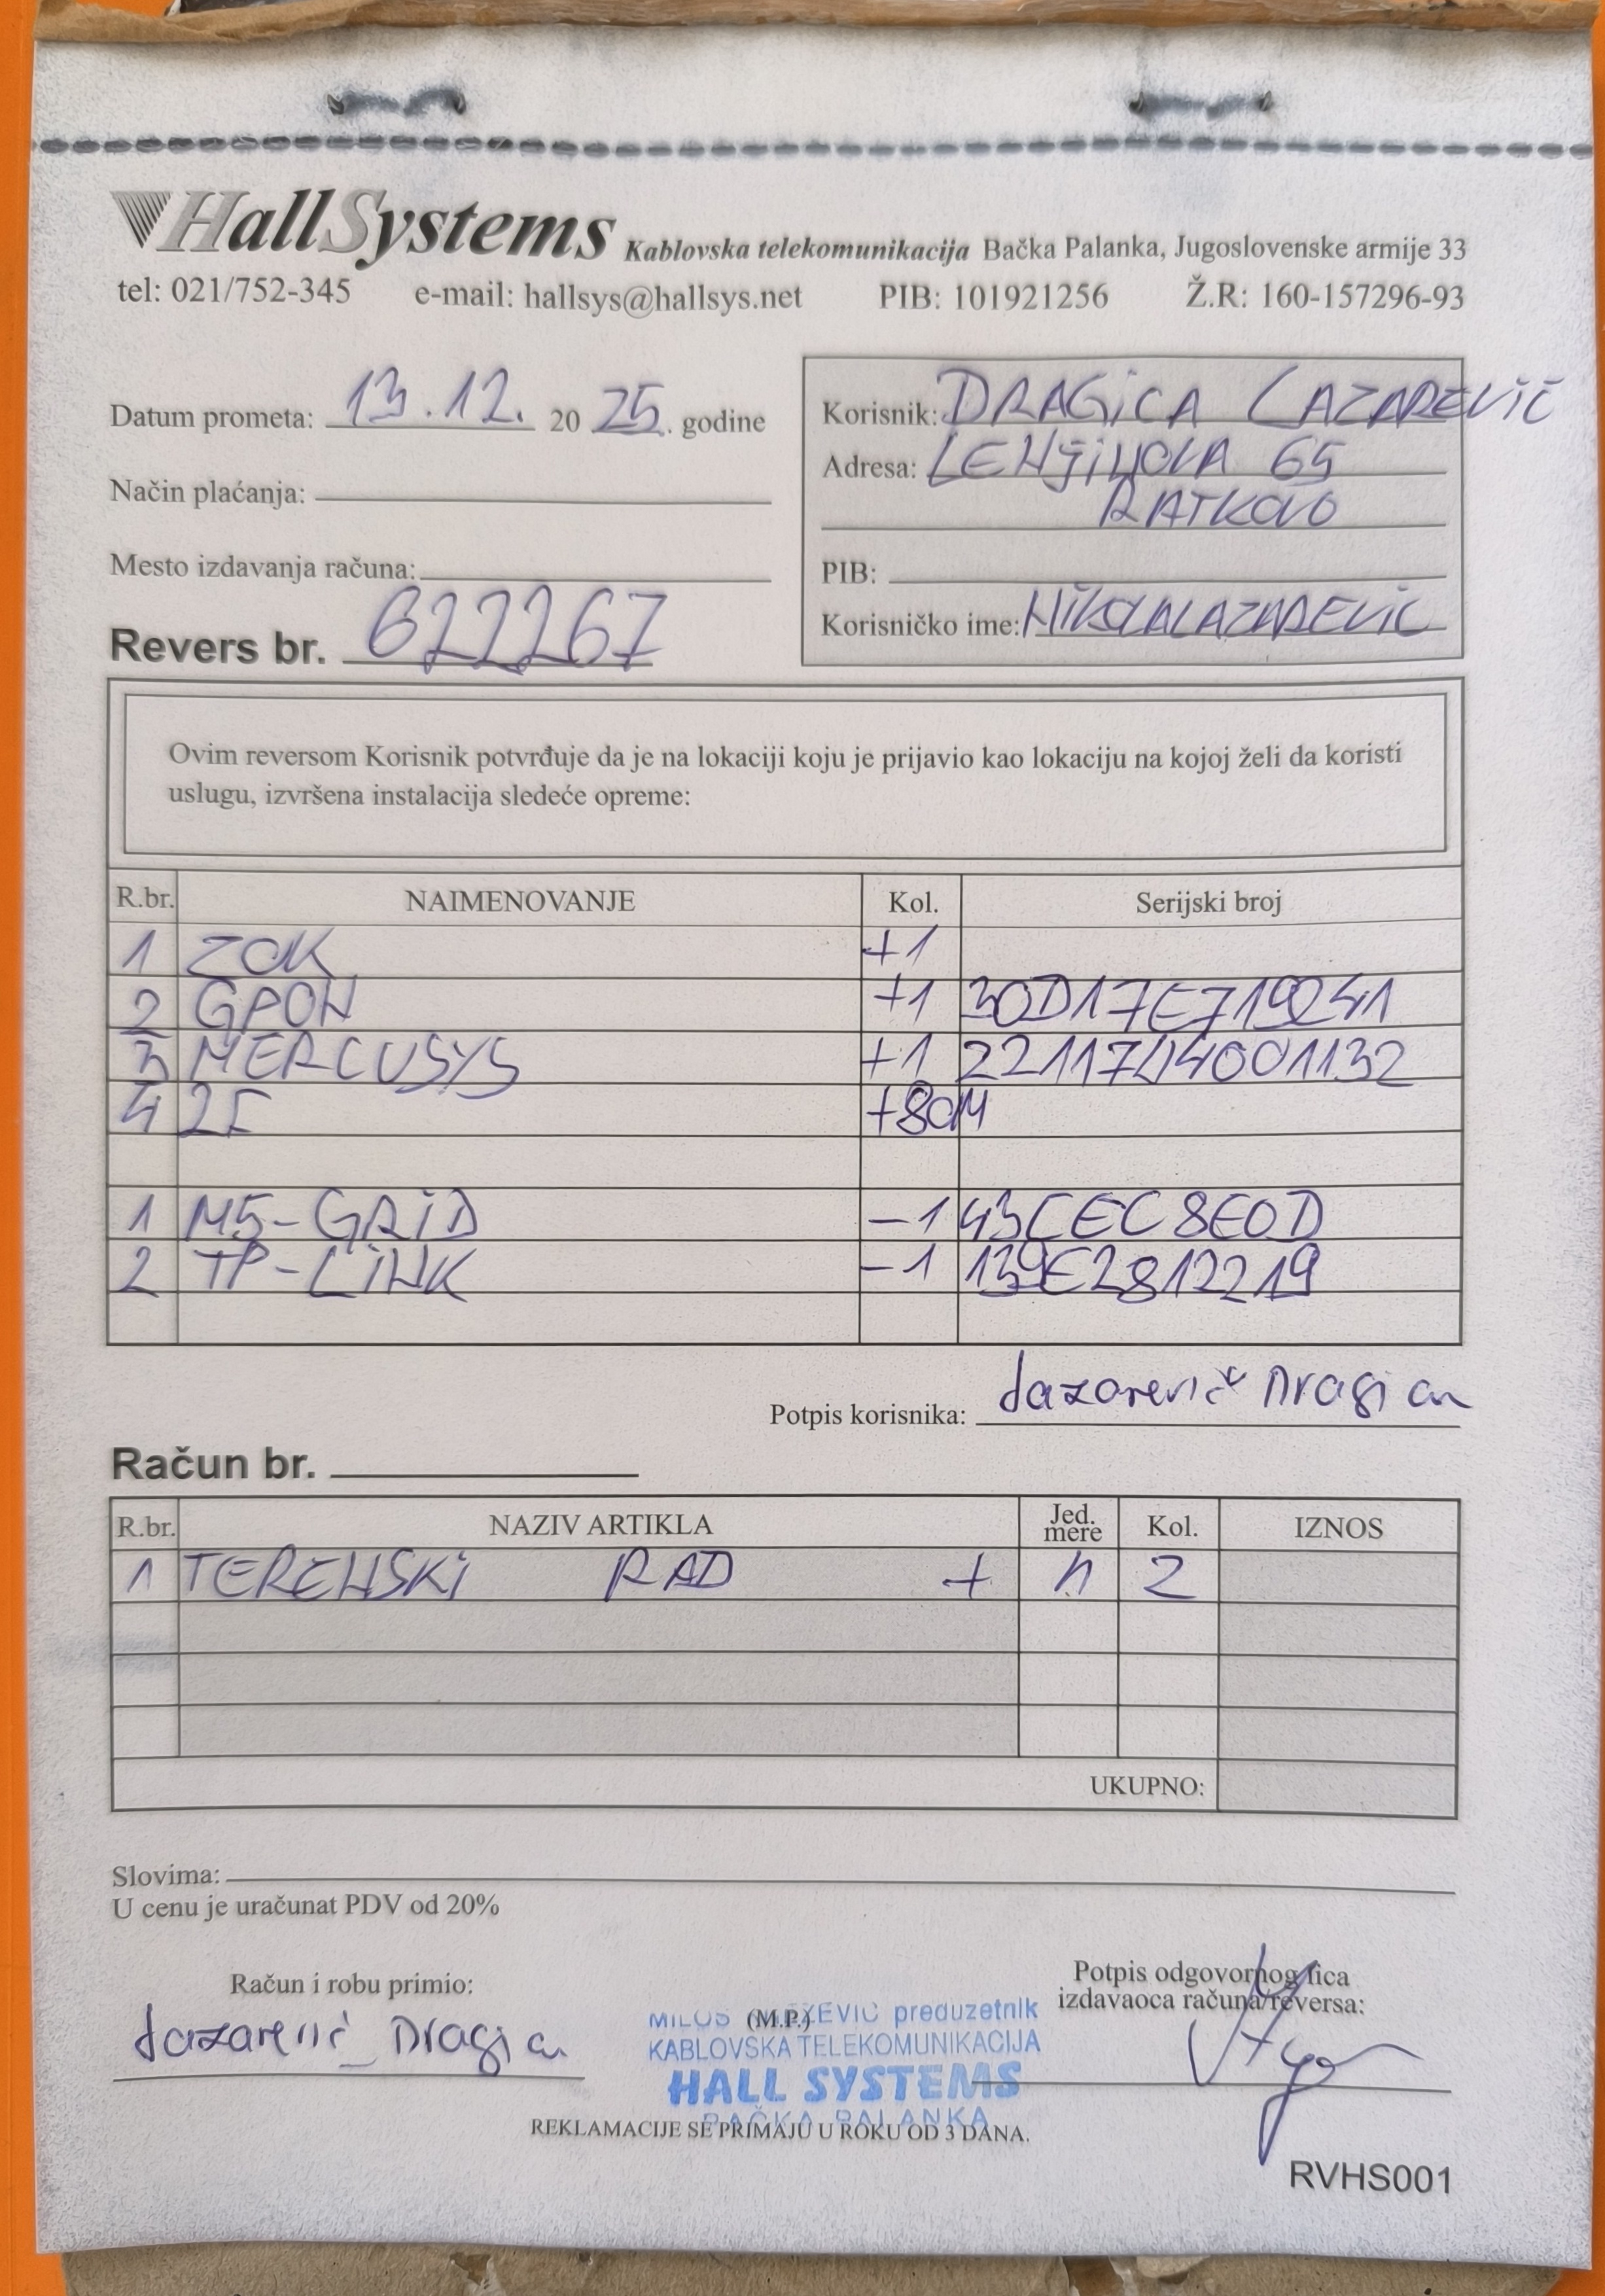 HallSystems Kablovska telekomunikacija Bačka Palanka, Jugoslovenske armije 33
tel: 021/752-345 e-mail: hallsys@hallsys.net PIB: 101921256 Ž.R: 160-157296-93
Datum prometa: 13.12. 20 25. godine
Način plaćanja:
Mesto izdavanja računa:
Revers br. 622267
Korisnik: DRAGiCA LAZAREViĆ
Adresa: LENJiNOVA 65
RATKOVO
PIB:
Korisničko ime: NiKOLALAZAREViC
Ovim reversom Korisnik potvrđuje da je na lokaciji koju je prijavio kao lokaciju na kojoj želi da koristi
uslugu, izvršena instalacija sledeće opreme:
R.br. NAIMENOVANJE Kol. Serijski broj
1 ZOK +1
2 GPON +1 30D17E719241
3 MERCUSYS +1 2211744001132
4 +80M
1 M5-GRiD -1 43CEC8E0D
2 TP-LiNK -1 139E2812219
Potpis korisnika: Lazarević Dragica
Račun br.
R.br. NAZIV ARTIKLA Jed. mere Kol. IZNOS
1 TERENSKi RAD + h 2
UKUPNO:
Slovima:
U cenu je uračunat PDV od 20%
Račun i robu primio:
Lazarević Dragica
(M.P.)
MILOŠ preduzetnik
KABLOVSKA TELEKOMUNIKACIJA
HALL SYSTEMS
BAČKA PALANKA
Potpis odgovornog lica
izdavaoca računa/reversa:
REKLAMACIJE SE PRIMAJU U ROKU OD 3 DANA.
RVHS001